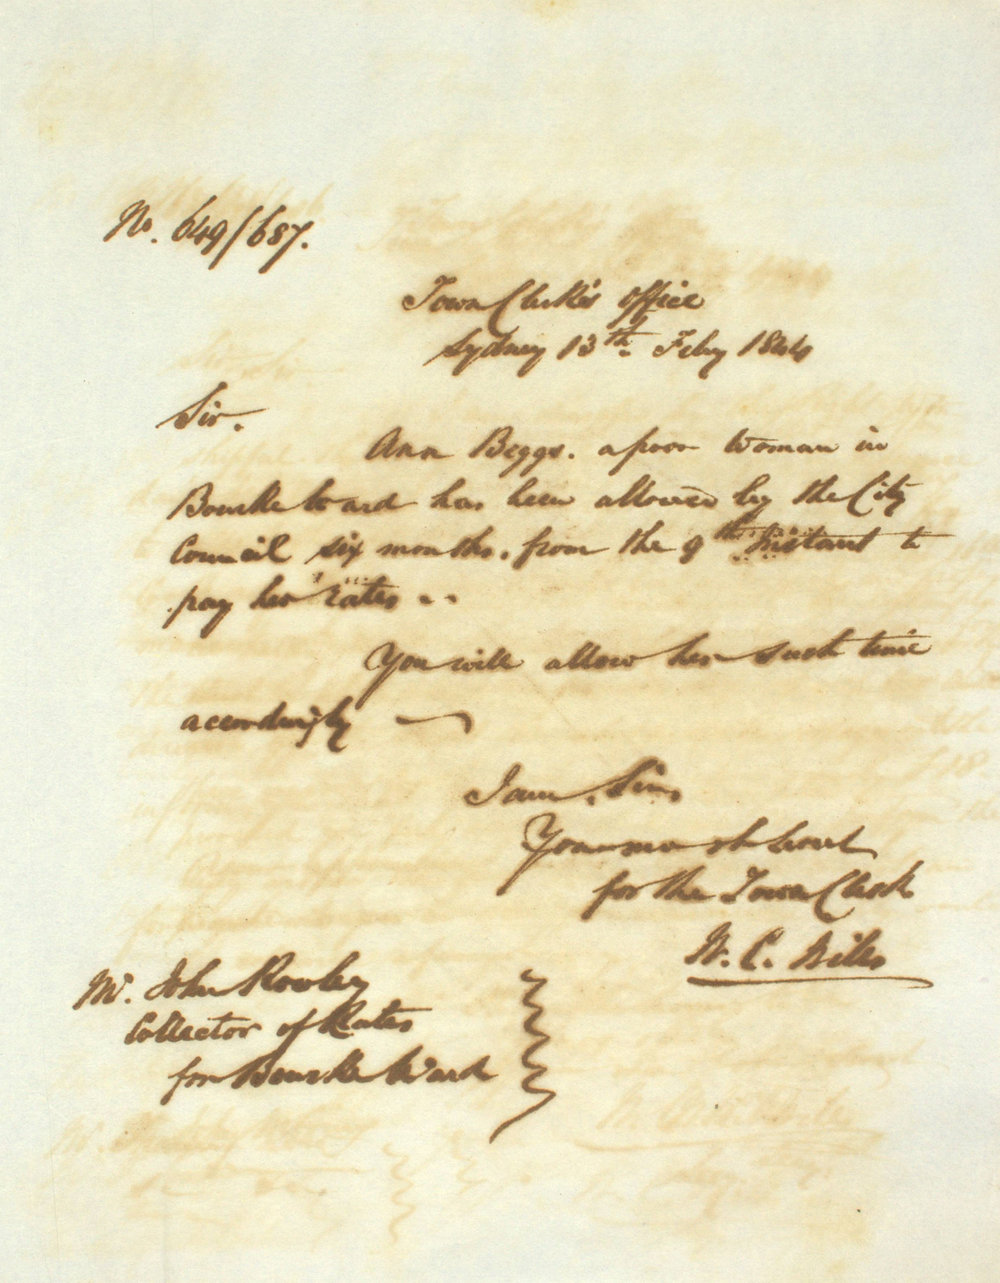 No. 649/687.
Town Clerk's Office
Sydney 13th Feby 1844
Sir.
Ann Beggs. a poor woman in
Bourke Ward has been allowed by the City
Council six months, from the 9th Instant to
pay her rates
You will allow her such time
accordingly
I am, Sir,
Your most servt
for the Town Clerk
W. C.
Mr. John Rowley
Collector of Rates
for Bourke Ward